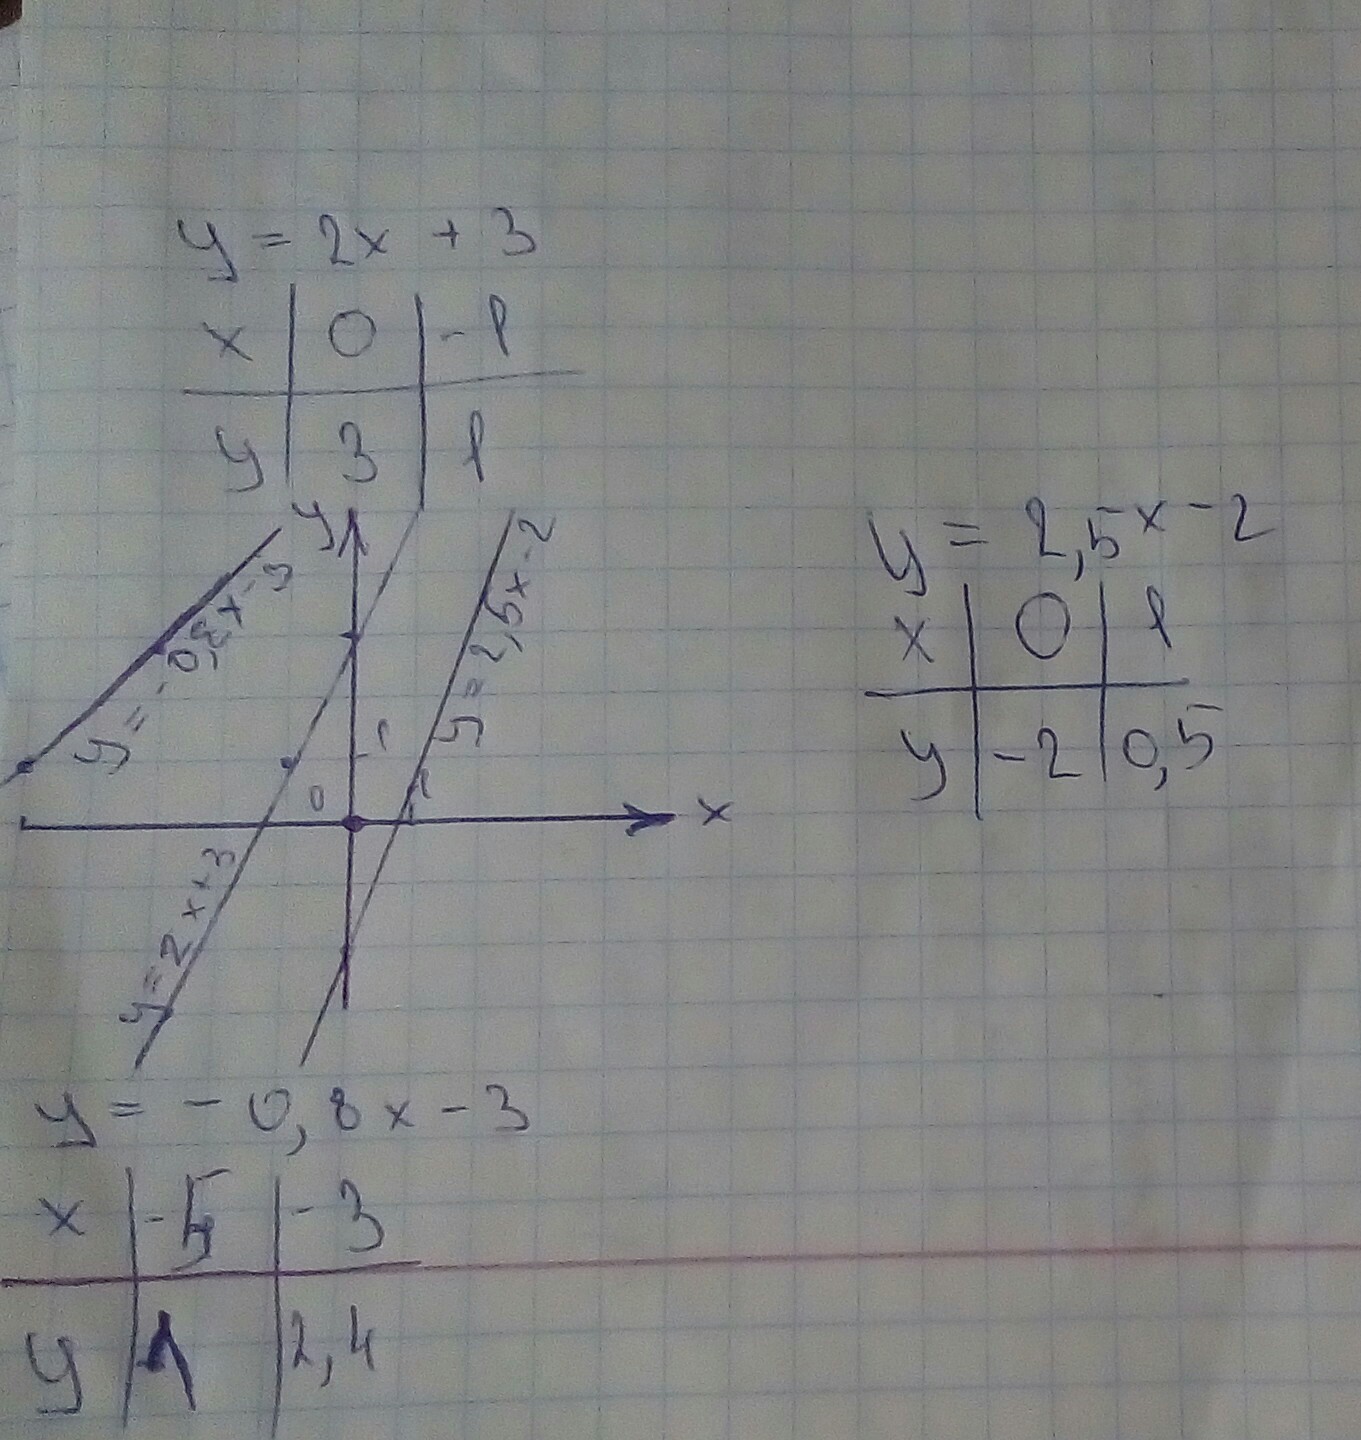 y = 2x + 3
x | 0 | -1
y | 3 | 1
y
y = -0,8x-3
y = 2,5x-2
1
0
1
x
y = 2x+3
y = 2,5x-2
x | 0 | 1
y | -2 | 0,5
y = -0,8x-3
x | -5 | -3
y | 1 | 2,4